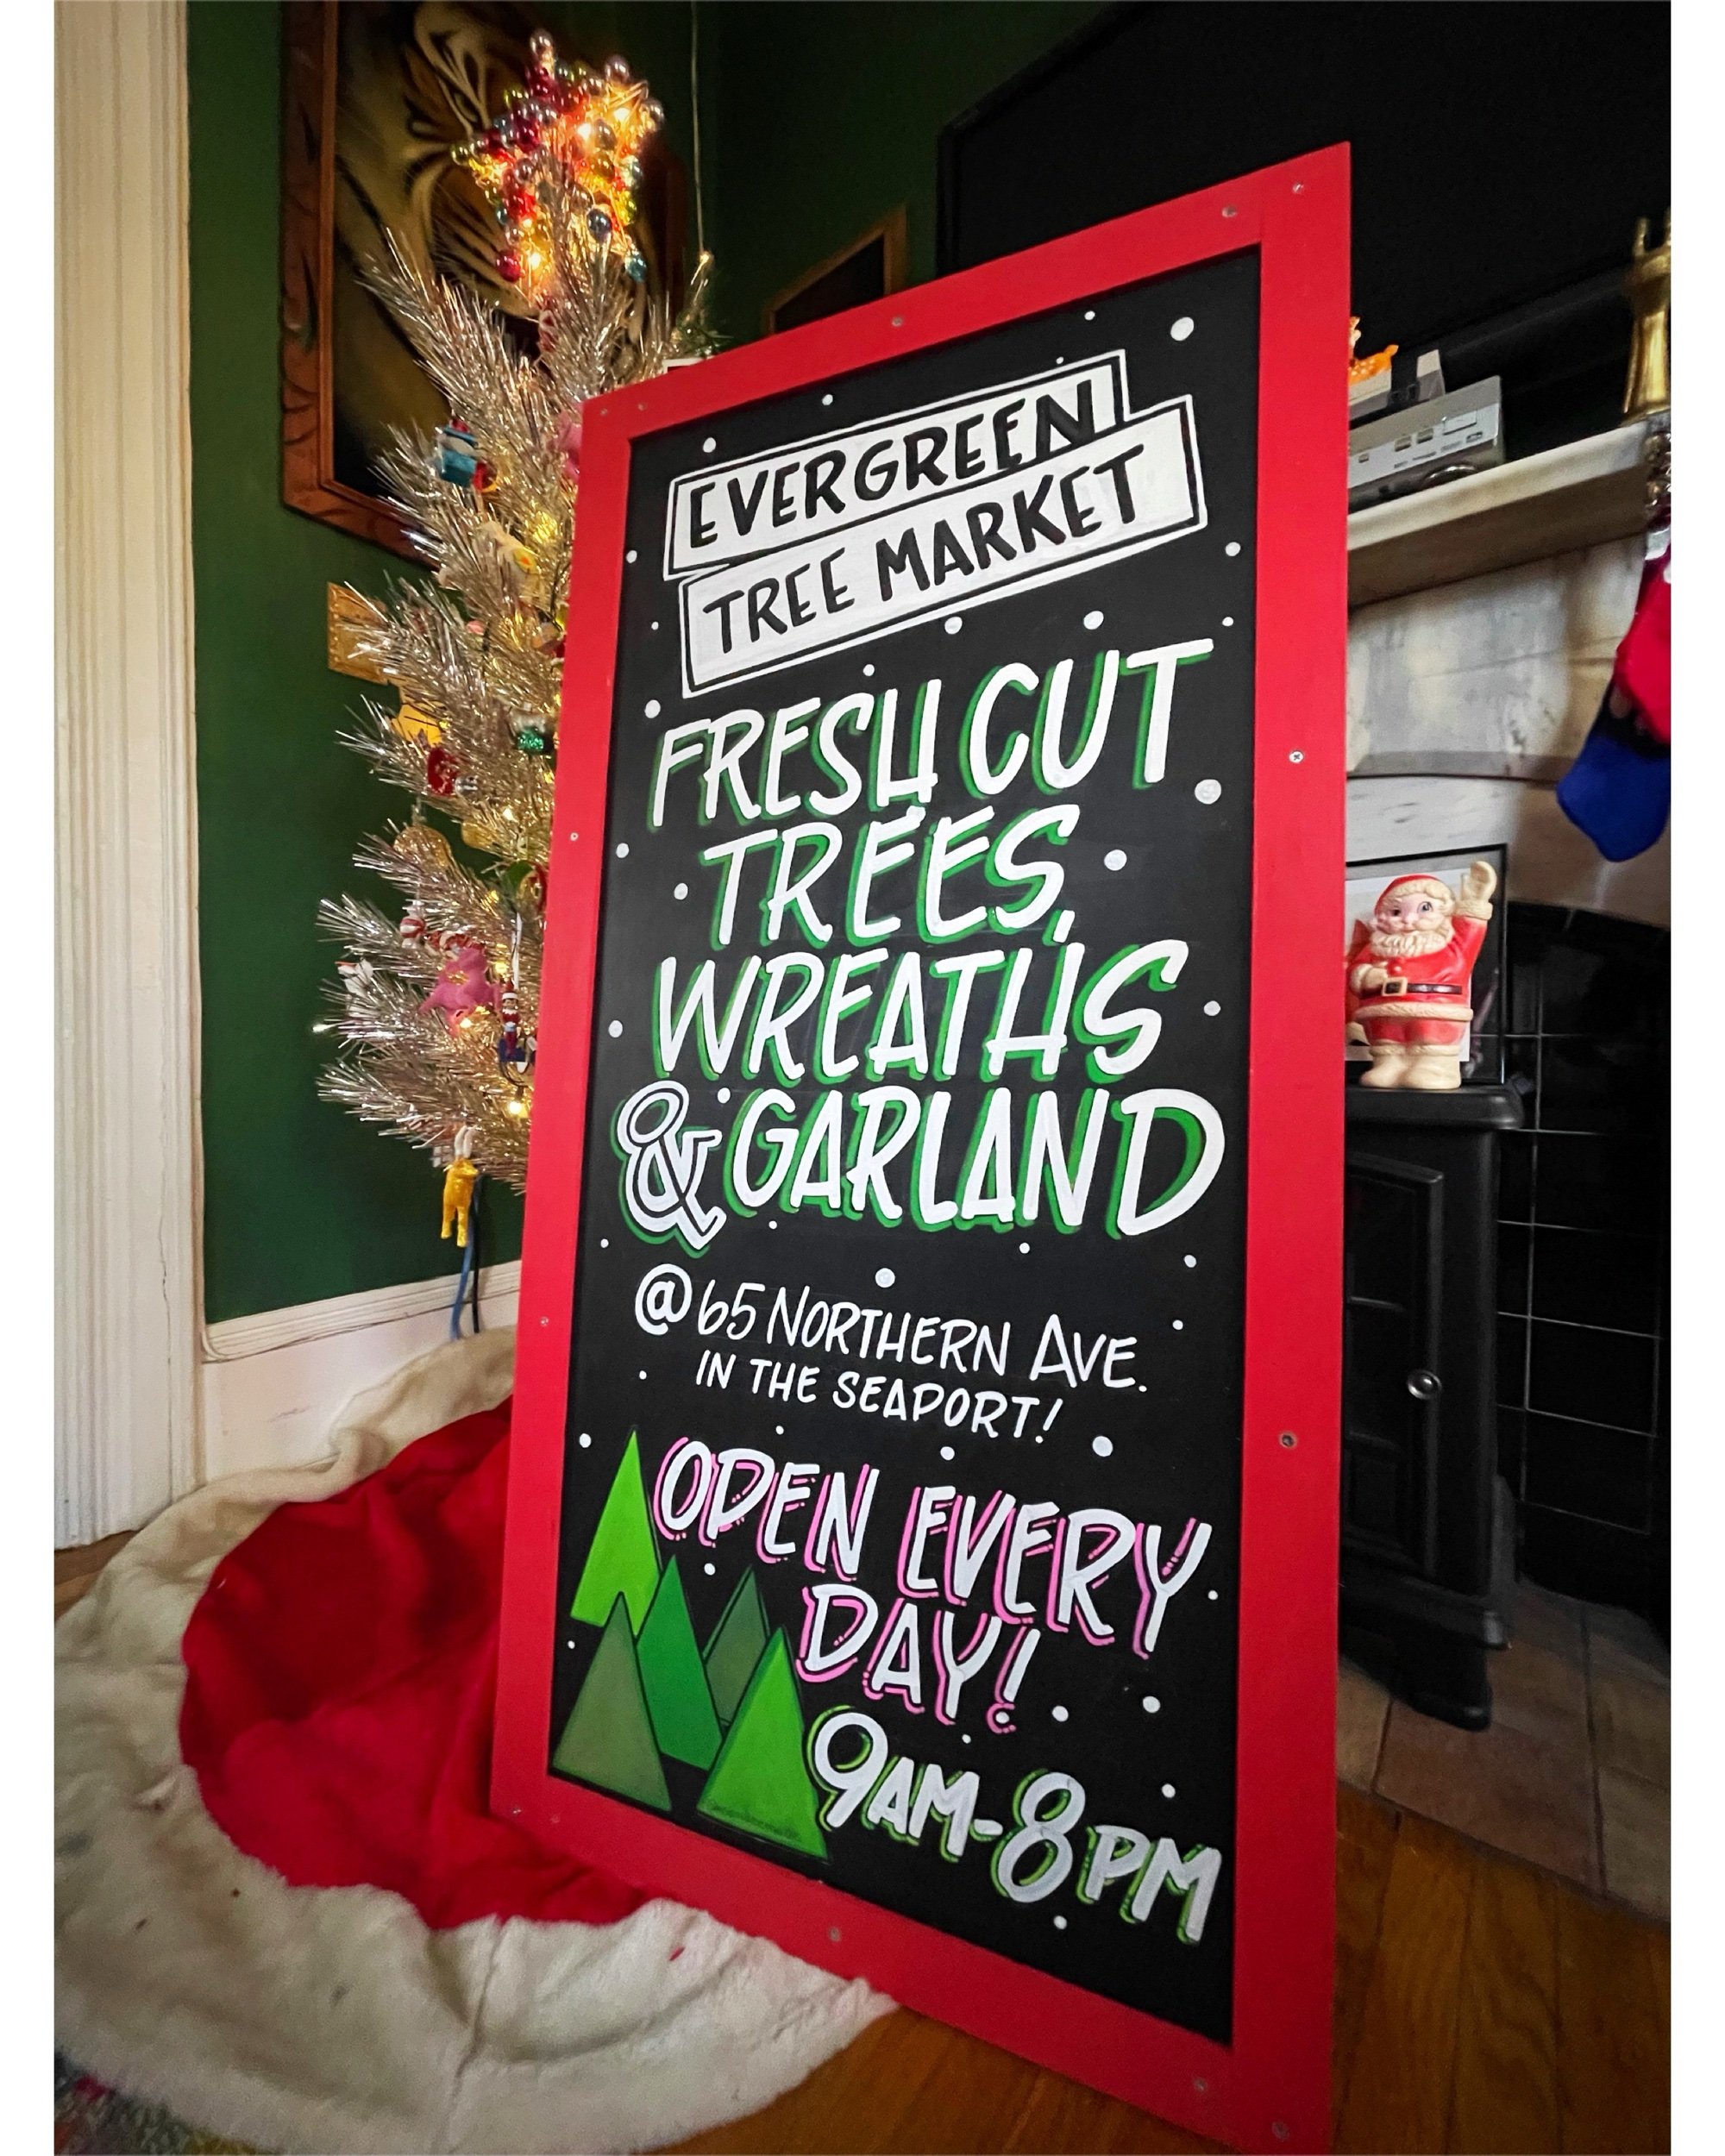 EVERGREEN
TREE MARKET
FRESH CUT
TREES,
WREATHS
& GARLAND
@ 65 NORTHERN AVE.
IN THE SEAPORT!
OPEN EVERY
DAY!
9AM-8PM